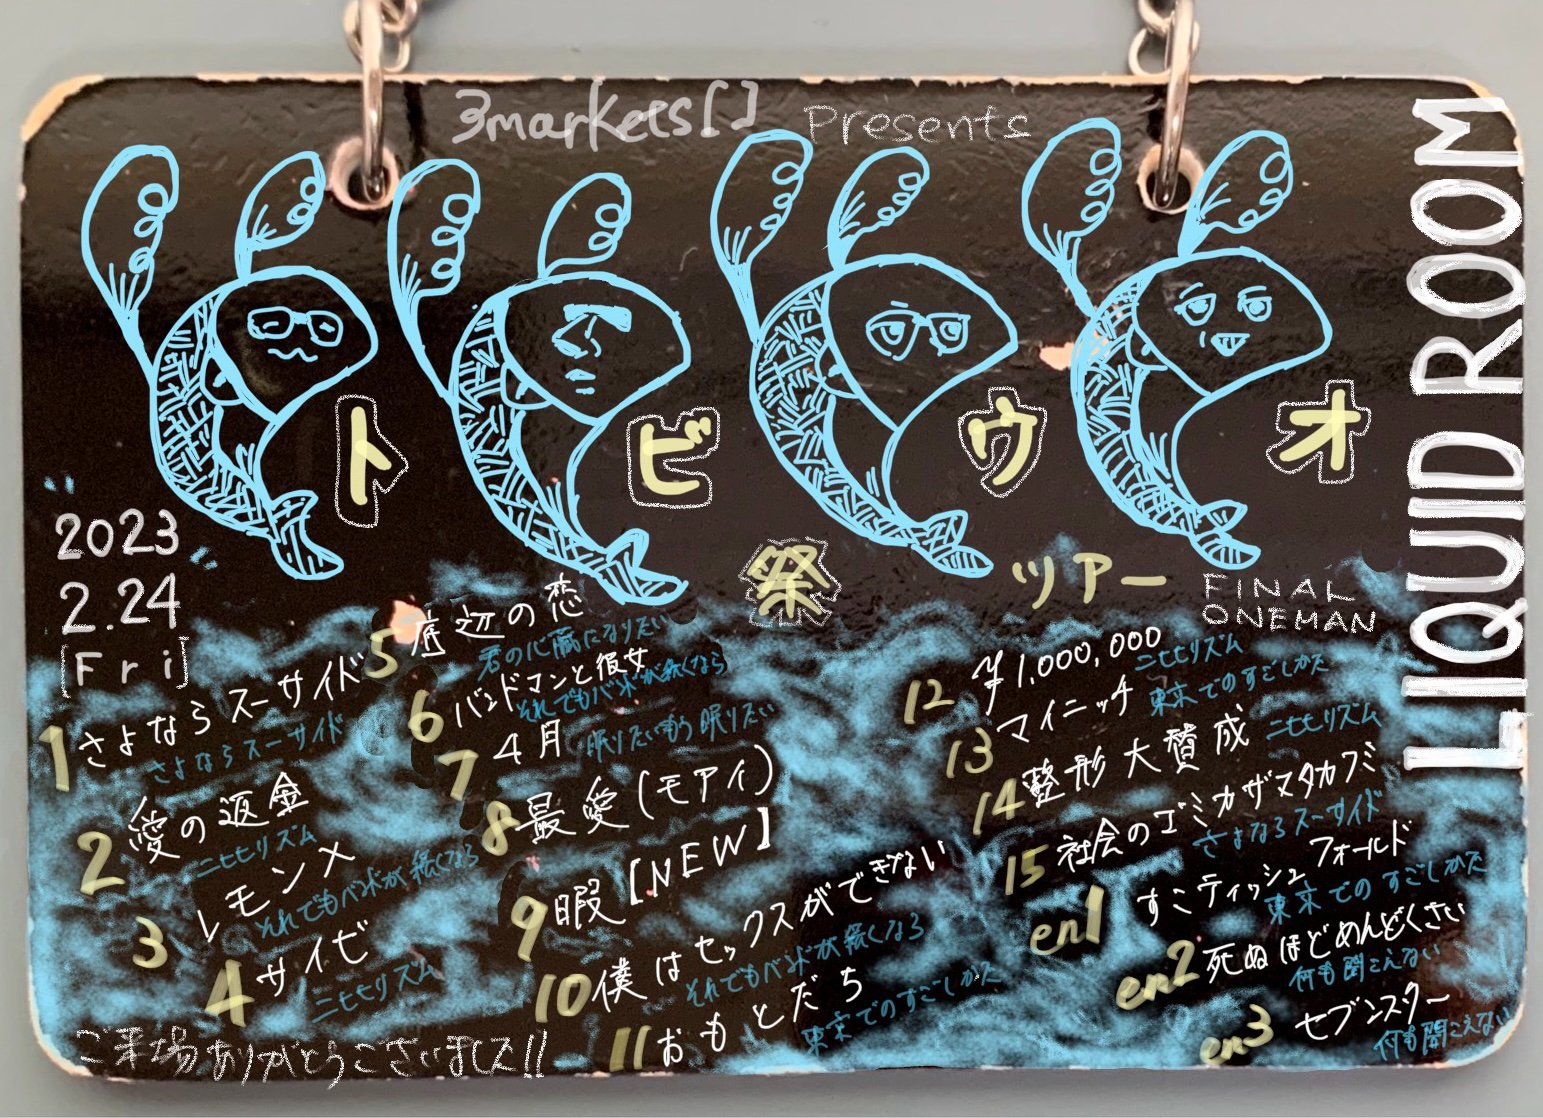 3markets[] Presents
ト ビ ウ オ
祭 ツアー FINAL
ONEMAN
LIQUID ROOM
2023
2.24
[Fri]
1 さよならスーサイド
さよならスーサイド
2 愛の返金
ニヒヒリズム
3 レモン×
それでもバンドが続くなら
4 サイゼ
ニヒヒリズム
5 底辺の恋
君の心臓になりたい
6 バンドマンと彼女
それでもバンドが続くなら
7 4月
眠りたいもう眠りたい
8 最愛(モアイ)
9 暇【NEW】
10 僕はセックスができない
それでもバンドが続くなら
11 おもとだち
東京でのすごしかた
12 ¥1,000,000
ニヒヒリズム
13 マイニッチ
東京でのすごしかた
14 整形大賛成
ニヒヒリズム
15 社会のゴミカザマタカフミ
さよならスーサイド
en1 すこティッシュフォールド
東京でのすごしかた
en2 死ぬほどめんどくさい
何も聞こえない
en3 セブンスター
何も聞こえない
ご来場ありがとうございました!!